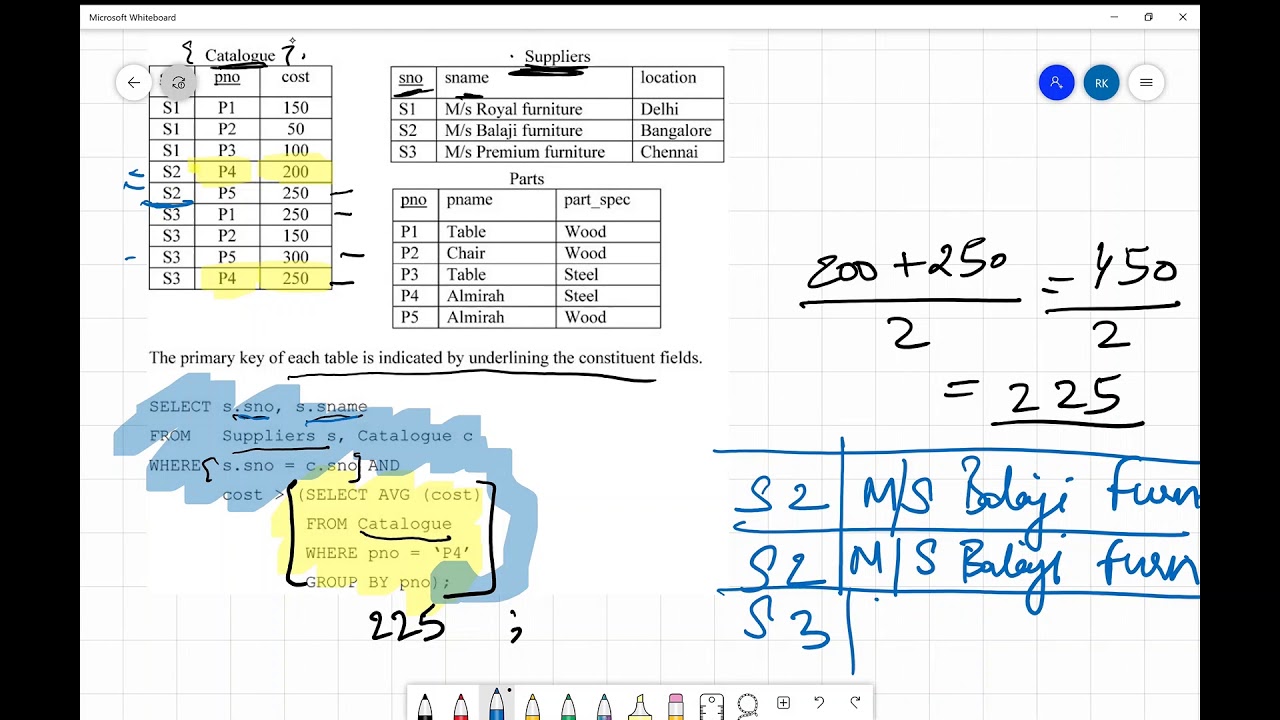 Microsoft Whiteboard
{ Catalogue }
pno cost
S1 P1 150
S1 P2 50
S1 P3 100
S2 P4 200
S2 P5 250
S3 P1 250
S3 P2 150
S3 P5 300
S3 P4 250
Suppliers
sno sname location
S1 M/s Royal furniture Delhi
S2 M/s Balaji furniture Bangalore
S3 M/s Premium furniture Chennai
RK
Parts
pno pname part_spec
P1 Table Wood
P2 Chair Wood
P3 Table Steel
P4 Almirah Steel
P5 Almirah Wood
The primary key of each table is indicated by underlining the constituent fields.
SELECT s.sno, s.sname
FROM Suppliers s, Catalogue c
WHERE s.sno = c.sno AND
cost > (SELECT AVG (cost)
FROM Catalogue
WHERE pno = ‘P4’
GROUP BY pno);
225 ;
200 + 250 = 450
2 2
= 225
S2 M/S Balaji Furn
S2 M/S Balaji Furn
S3